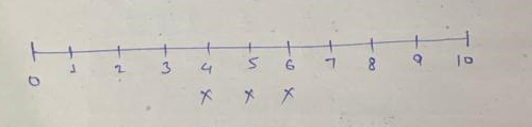 0 1 2 3 4 5 6 7 8 9 10
x x x